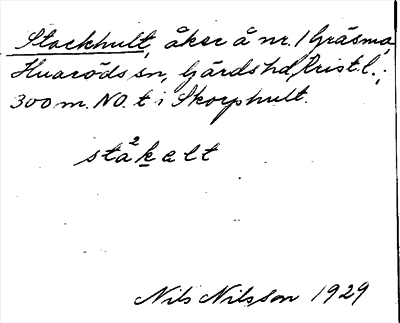 Stockhult, åker å nr. 1 Gräsma,
Huaröds sn, Gärds hd, Krist. l.;
300 m. NO. t i Skorphult.
sta²kalt
Nils Nilsson 1929